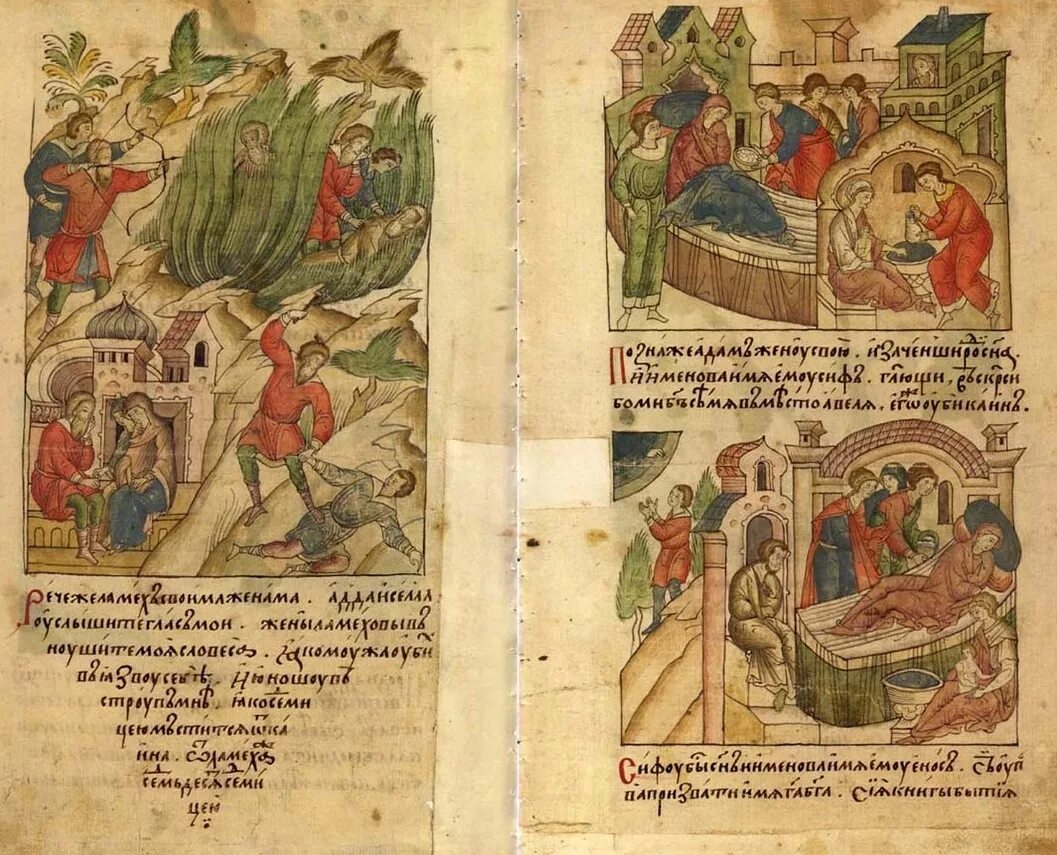 Рече же ламехъ своима женама . адда и селла
оуслышите гласъ мои . жены ламеховы въ
ноушите моя словеса . яко моужа оуби
въ язвоу себѣ . и юношоу въ
строупъ мнѣ . яко седми
цею мъстится ѿ ка
ина . ѿ ламеха
семьдесят седми
цею
Позна же адамъ женоу свою . и заченши роди сна .
и именова имя емоу сифъ . глющи , въскреси
бо ми бъ семя въмѣсто авеля . егоже оуби каинъ .
Сифоу бысть снъ и именова имя емоу еносъ . съ оупо
ва призвати имя га бга . сия книгы бытия